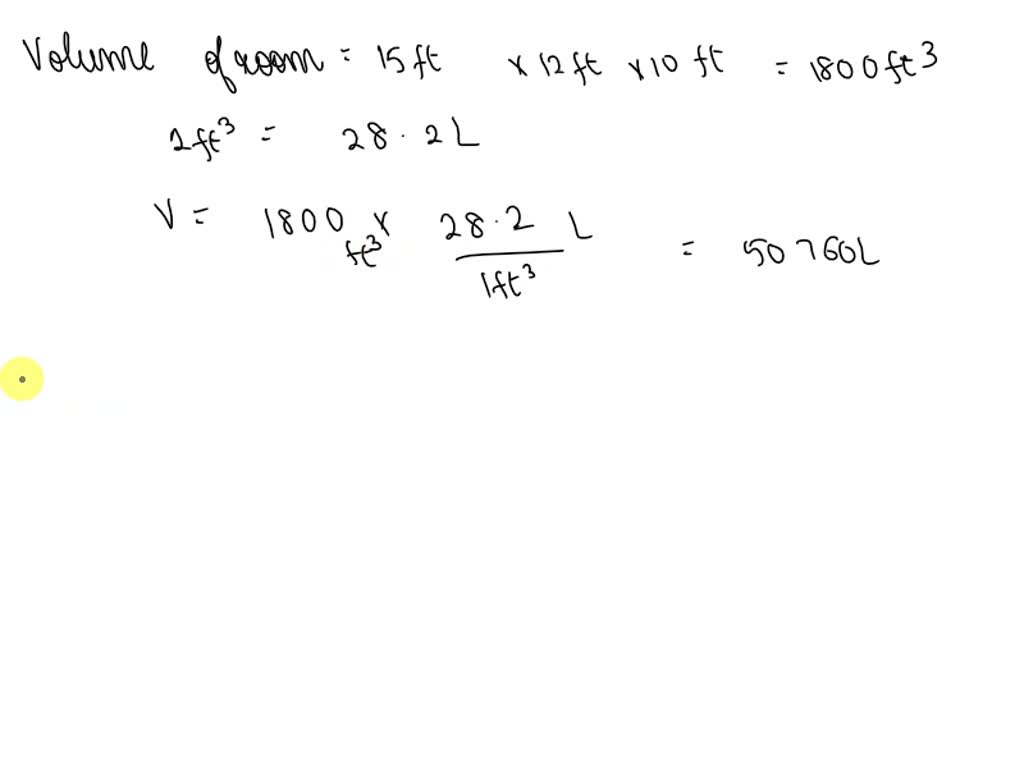 Volume of room = 15 ft × 12 ft × 10 ft = 1800 ft³
1 ft³ = 28.2 L
V = 1800 ft³ × 28.2 L / 1 ft³ = 50760 L